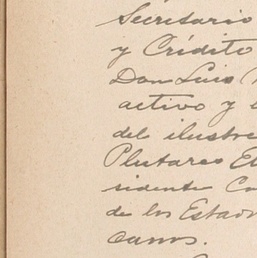 Secretario
y Crédito
Don Luis
activo y
del ilustre
Plutarco El
sidente Co
de los Estado
canos.